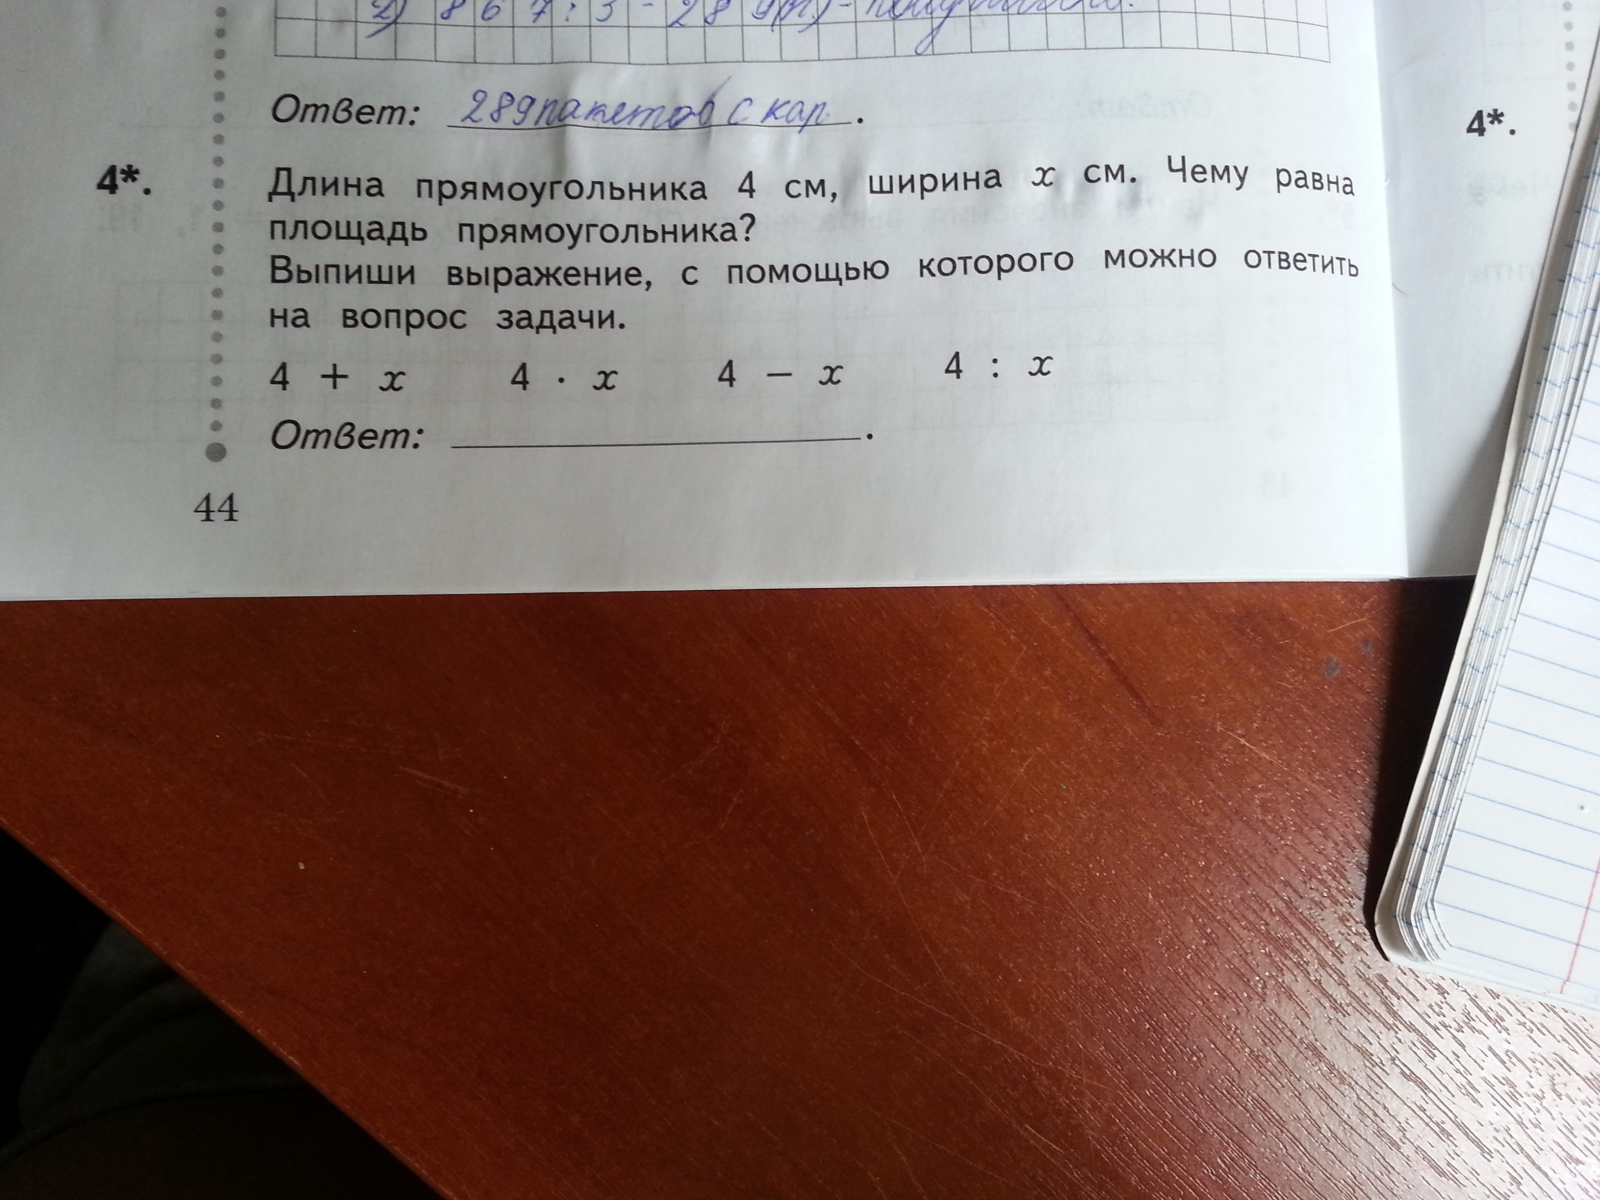 2) 867:3-289(п)-
Ответ: 289 пакетов с кар.
4*.
4*. Длина прямоугольника 4 см, ширина x см. Чему равна
площадь прямоугольника?
Выпиши выражение, с помощью которого можно ответить
на вопрос задачи.
4 + x 4 · x 4 − x 4 : x
Ответ: .
44